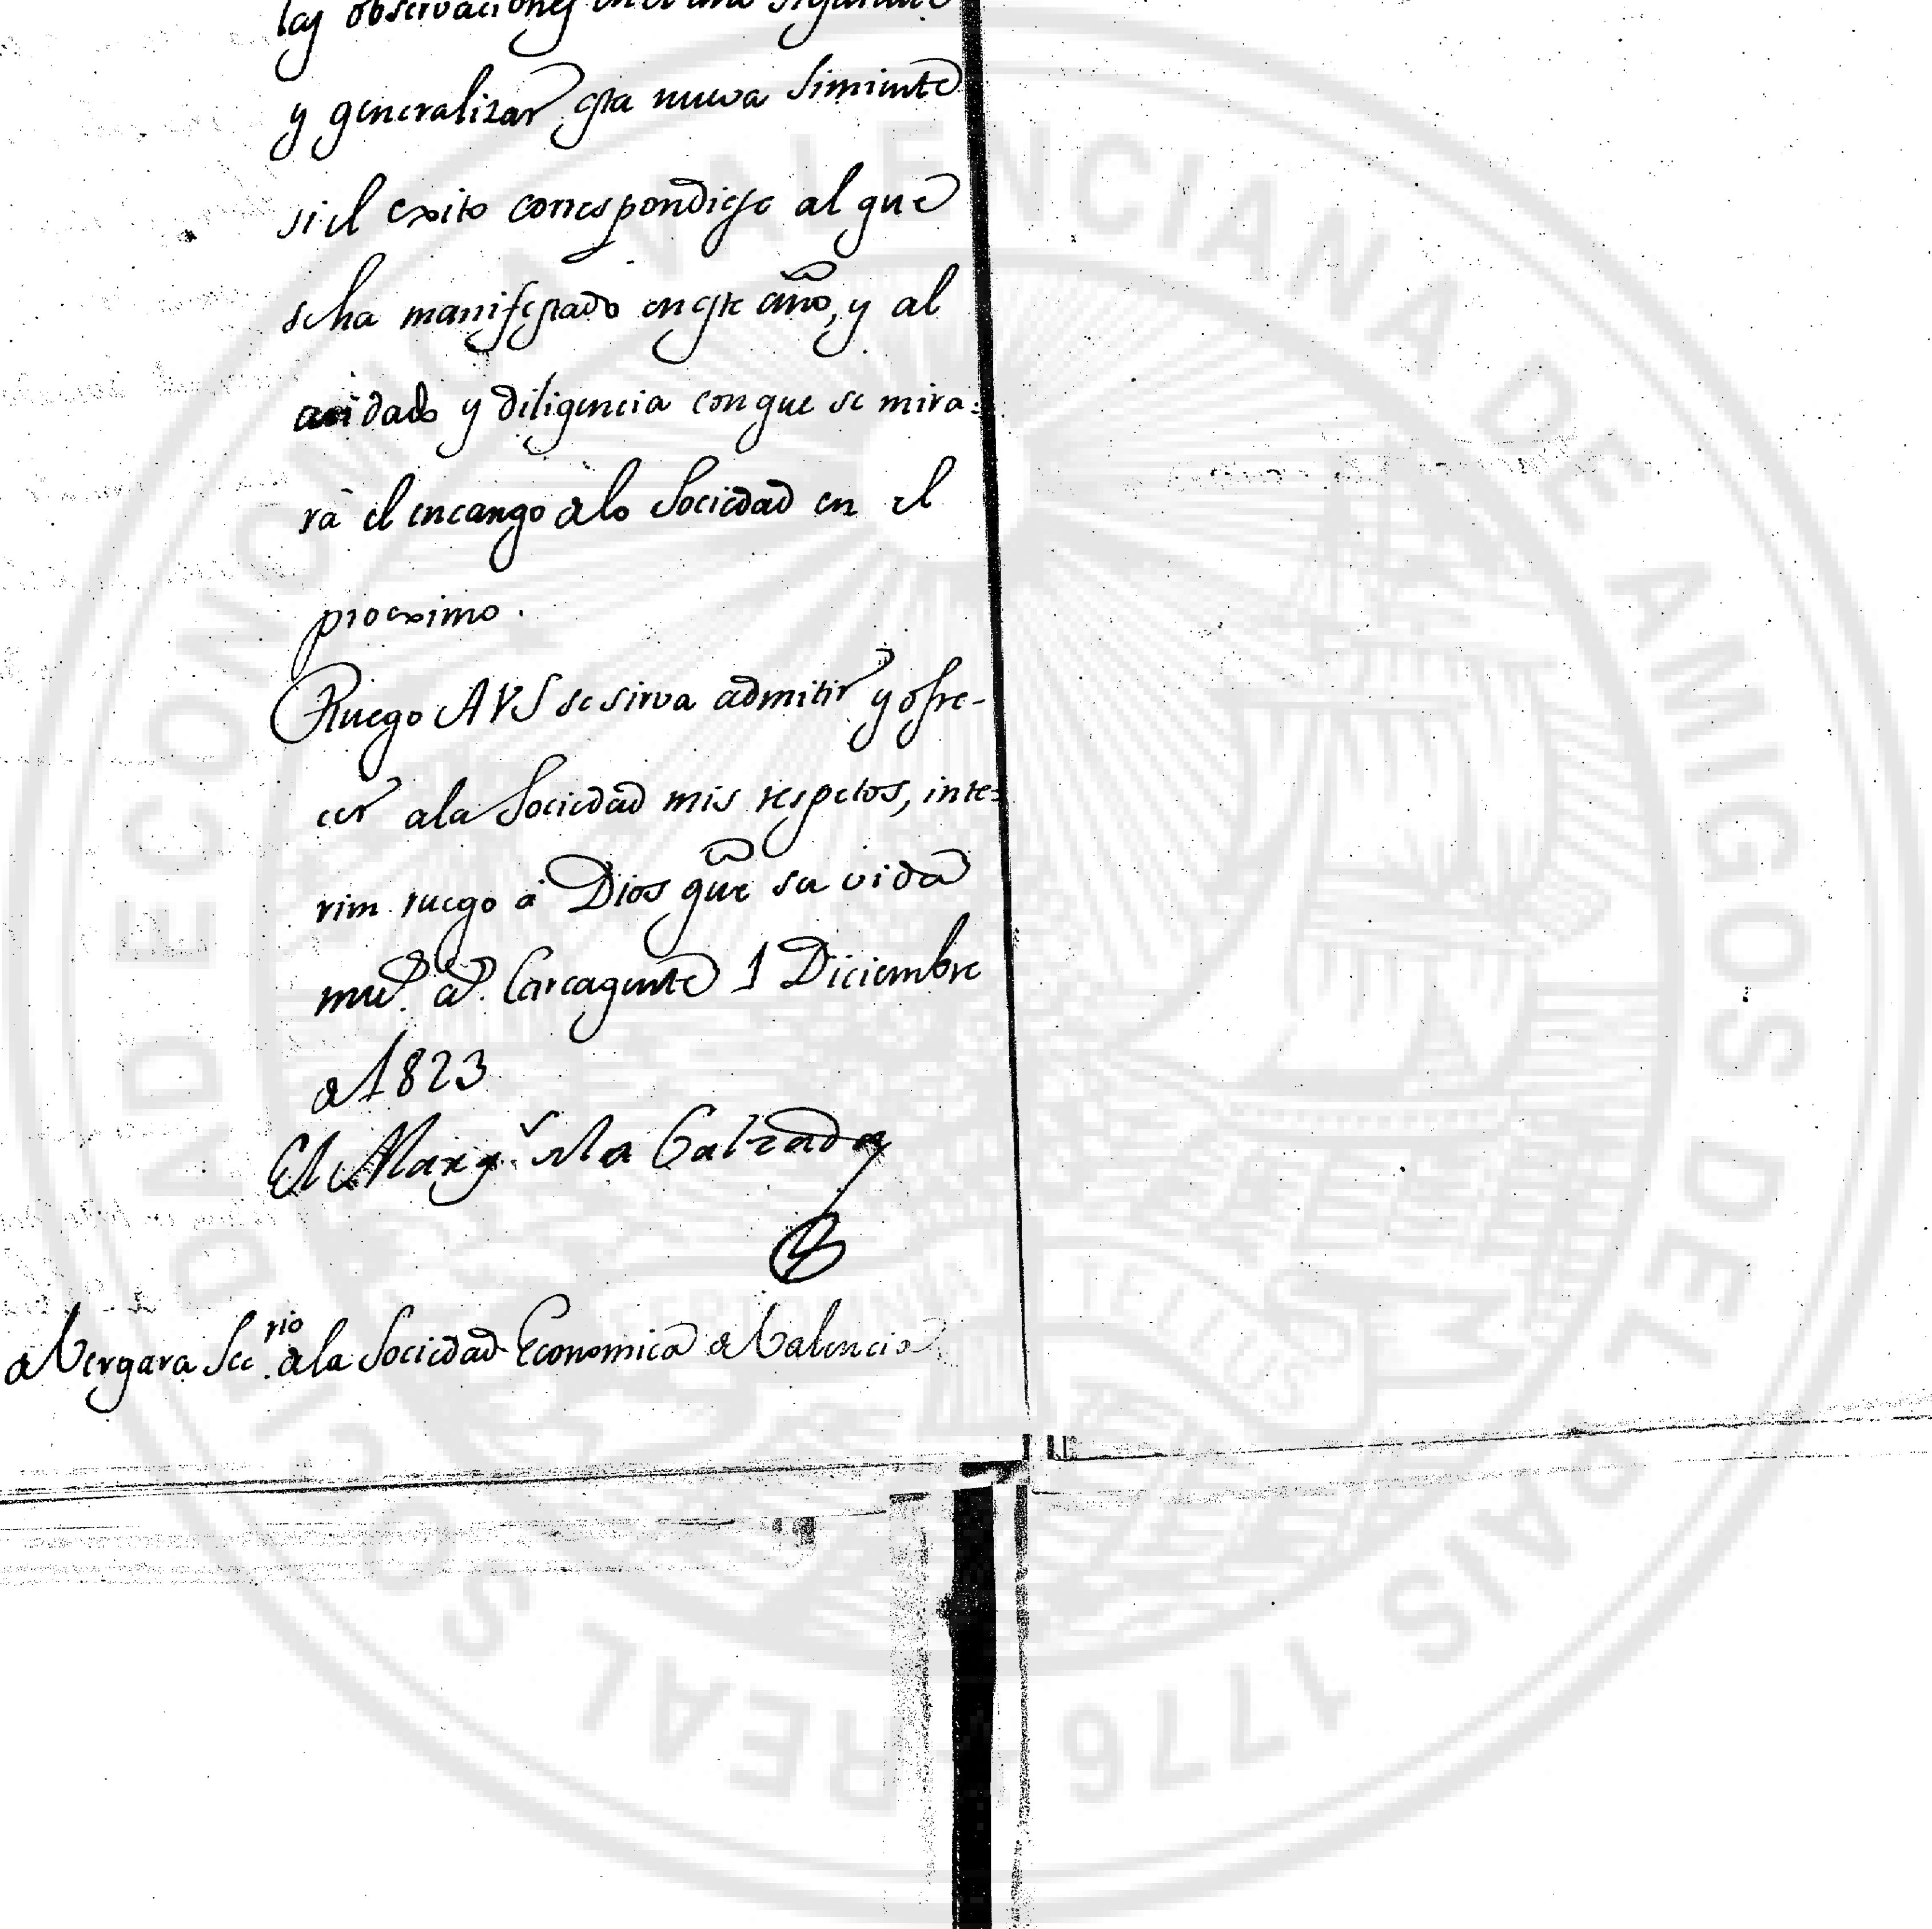 las observaciones en el año siguiente
y generalizar esta nueva simiente
si el exito correspondiese al que
se ha manifestado en este año, y al
cuidado y diligencia con que se mira=
rá el encargo de la Sociedad en el
proximo.
Ruego A VS se sirva admitir y ofre-
cer a la Sociedad mis respetos, inte=
rim ruego á Dios gue su vida
ms. as. Carcagente 1 Diciembre
de 1823
El Marqs. de la Calzada
de Vergara Secrio. de la Sociedad Economica de Valencia
REAL SOCIEDAD ECONOMICA VALENCIANA DE AMIGOS DEL PAIS 1776